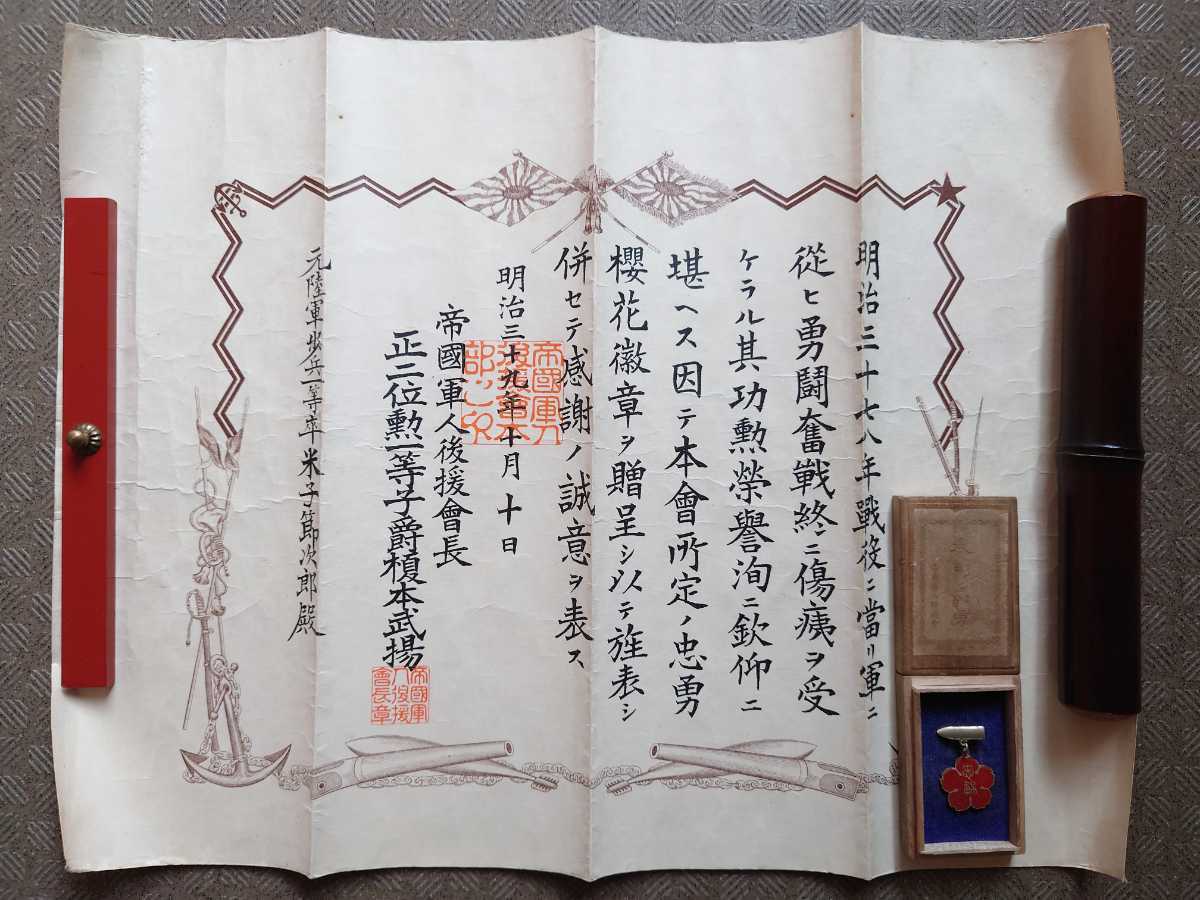 明治三十七八年戰役ニ當リ軍ニ
從ヒ勇鬪奮戰終ニ傷痍ヲ受
ケラル其功勲榮譽洵ニ欽仰ニ
堪ヘス因テ本會所定ノ忠勇
櫻花徽章ヲ贈呈シ以テ旌表シ
併セテ感謝ノ誠意ヲ表ス
明治三十九年十月十日
帝國軍人後援會長
正二位勲一等子爵榎本武揚
帝國軍
人後援
會長章
元陸軍歩兵一等卒米子節次郎殿